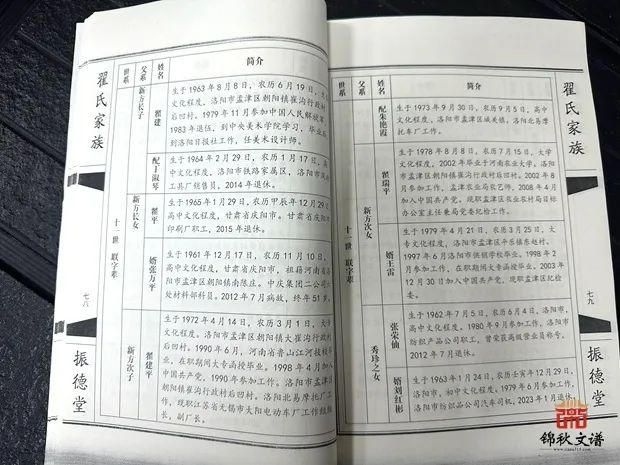 翟氏家族
七八
振德堂
世系
父系
姓名
简介
十一世 联字辈
新方长子
翟建
生于1963年8月8日,农历6月19日,
文化程度,洛阳市孟津区朝阳镇崔沟行政村
后凹村。1979年11月参加中国人民解放军,
1983年退伍,到中央美术学院学习,毕业后
到洛阳日报社工作,任美术设计师。
配王淑琴
生于1964年2月29日,农历1月17日,高
中文化程度,洛阳市铁路家属区,洛阳市
工具厂销售员,2014年退休。
新方长女
翟平
生于1965年1月29日,农历甲辰年12月29日,
高中文化程度,甘肃省庆阳市。甘肃省庆阳市
印刷厂职工,2015年退休。
婿张万平
生于1961年12月17日,农历11月10日,
高中文化程度,甘肃省庆阳市,祖籍河南省洛
阳市孟津区朝阳镇南陈庄。中庆集团二公司二
处材料部科员。2012年7月病故,终年51岁。
新方次子
翟建平
生于1972年4月14日,农历3月1日,大专
文化程度。洛阳市孟津区朝阳镇大崔沟行政村
后凹村。1990年6月,河南省青山江河技校毕
业,在职期间大专函授毕业。1998年4月加入
中国共产党,1990年参加工作。洛阳市孟津区
朝阳镇崔沟行政村后凹村。洛阳北易摩托厂工
作,现职江苏省无锡市大阳电动车厂工作组组
长,副厂长。
世系
父系
姓名
简介
十一世 联字辈
配朱艳霞
生于1973年9月30日,农历9月5日,高中
文化程度,洛阳市孟津区城关镇,洛阳北易摩
托车厂工作。
新方次女
翟瑞平
生于1978年8月8日,农历7月15日,大学
文化程度,2002年毕业于河南农业大学。洛阳
市孟津区朝阳镇崔沟行政村后凹村。2002年8
月参加工作,孟津农业局农艺师,2008年4月
加入中国共产党,现职孟津区农业农村局目标
办公室主任兼局党委纪检工作。
婿王雷
生于1979年4月21日,农历3月25日,大
专文化程度,洛阳市孟津区平乐镇东赵村。
1997年6月洛阳市供销学校毕业。1998年2
月参加工作,在职期间大专函授毕业。2003年
12月30日加入中国共产党,现职孟津区纪检
委。
秀珍之女
张荣仙
生于1962年7月5日,农历6月4日,洛阳市,
高中文化程度,1980年9月参加工作,洛阳市
纺织产品公司职工,曾荣获高级营业员称号,
2012年7月退休。
婿刘红彬
生于1963年1月24日,农历壬寅年12月29日,
洛阳市,初中文化程度,1979年6月参加工作,
洛阳市纺织品公司汽车司机,2023年1月退休。
翟氏家族
七九
振德堂
锦秋文谱